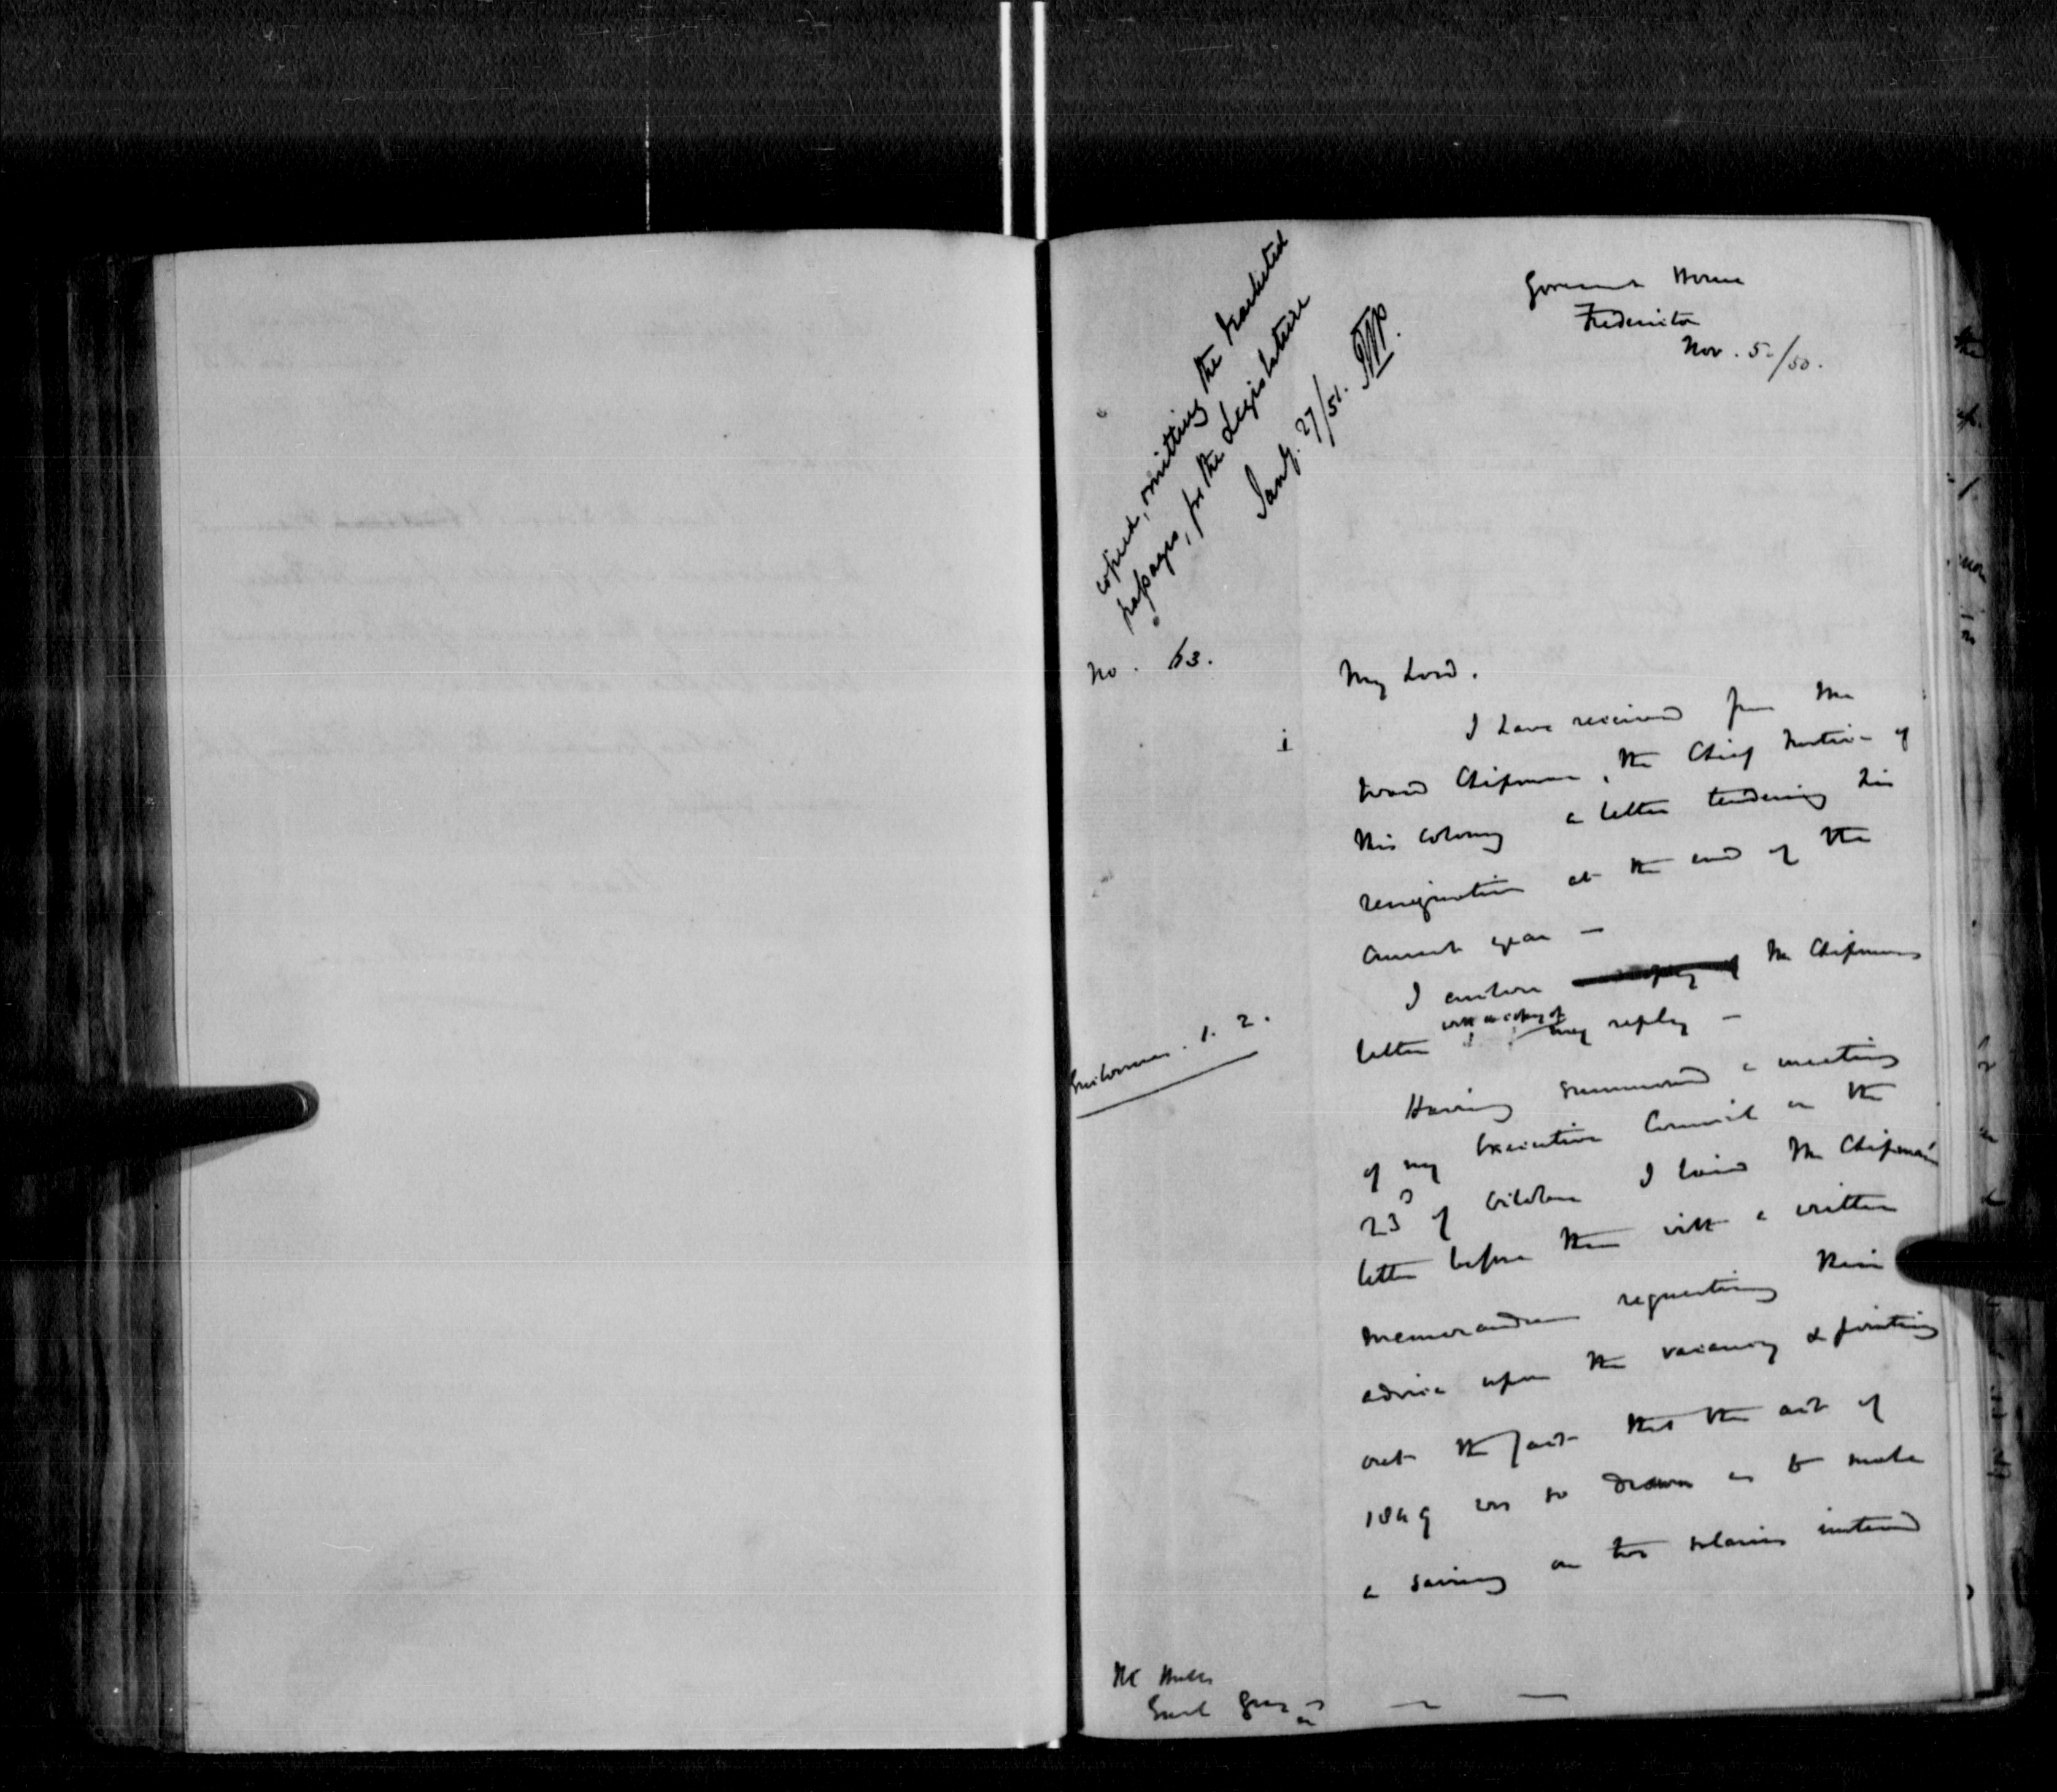 copied, omitting the bracketed
passages, for the Legislature
Jany. 27/51.
Government House
Fredericton
Nov. 5./50.
No. 63.
My Lord.
I have received from Mr
Ward Chipman, the Chief Justice of
this Colony a letter tendering his
resignation at the end of the
current year —
I enclose Mr Chipmans
letter with a copy of my reply —
Enclosures. 1. 2.
Having summoned a meeting
of my Executive Council on the
23d of October I laid Mr Chipman's
letter before them with a written
memorandum requesting their
advice upon the vacancy & pointing
out the fact that the act of
1849 was so drawn as to make
a saving on two salaries instead
Earl Grey